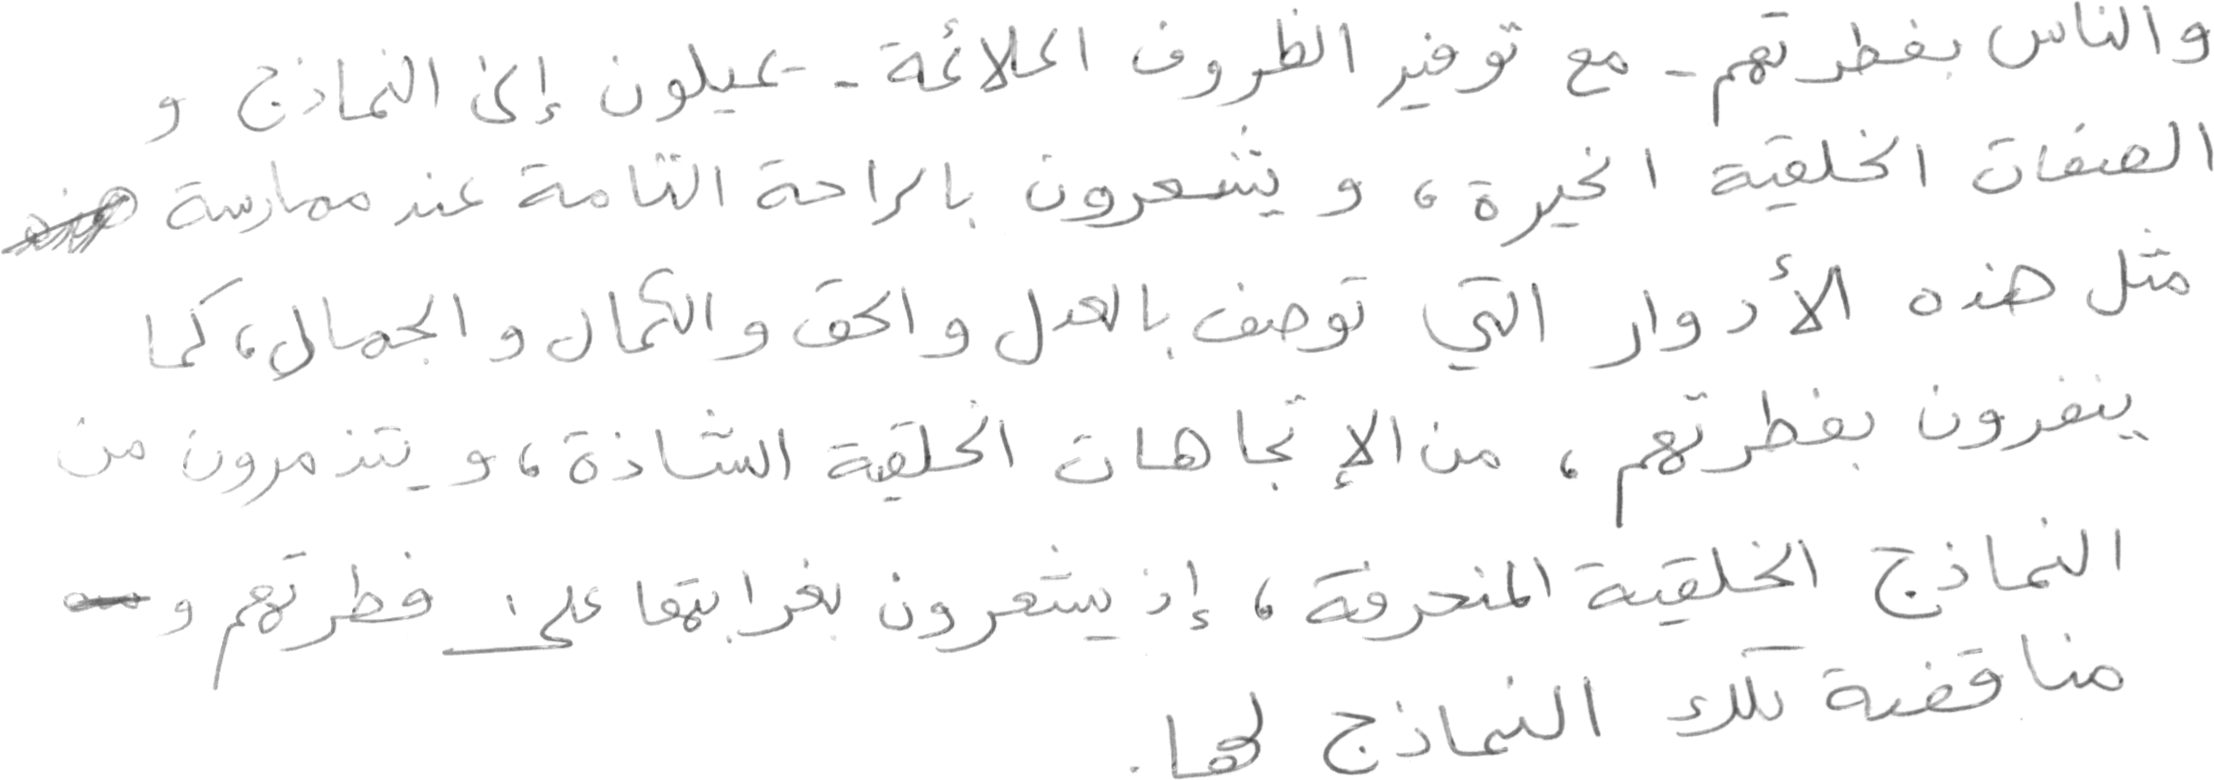 والناس بفطرتهم - مع توفير الظروف الملائمة - يميلون إلى النماذج و
الصفات الخلقية الخيرة، ويشعرون بالراحة التامة عند ممارسة
مثل هذه الأدوار التي توصف بالعدل والحق والكمال والجمال، كما
ينفرون بفطرتهم، من الإتجاهات الخلقية الشاذة، ويتذمرون من
النماذج الخلقية المنحرفة، إذ يشعرون بغرابتها على فطرتهم و
مناقضة تلك النماذج لها.